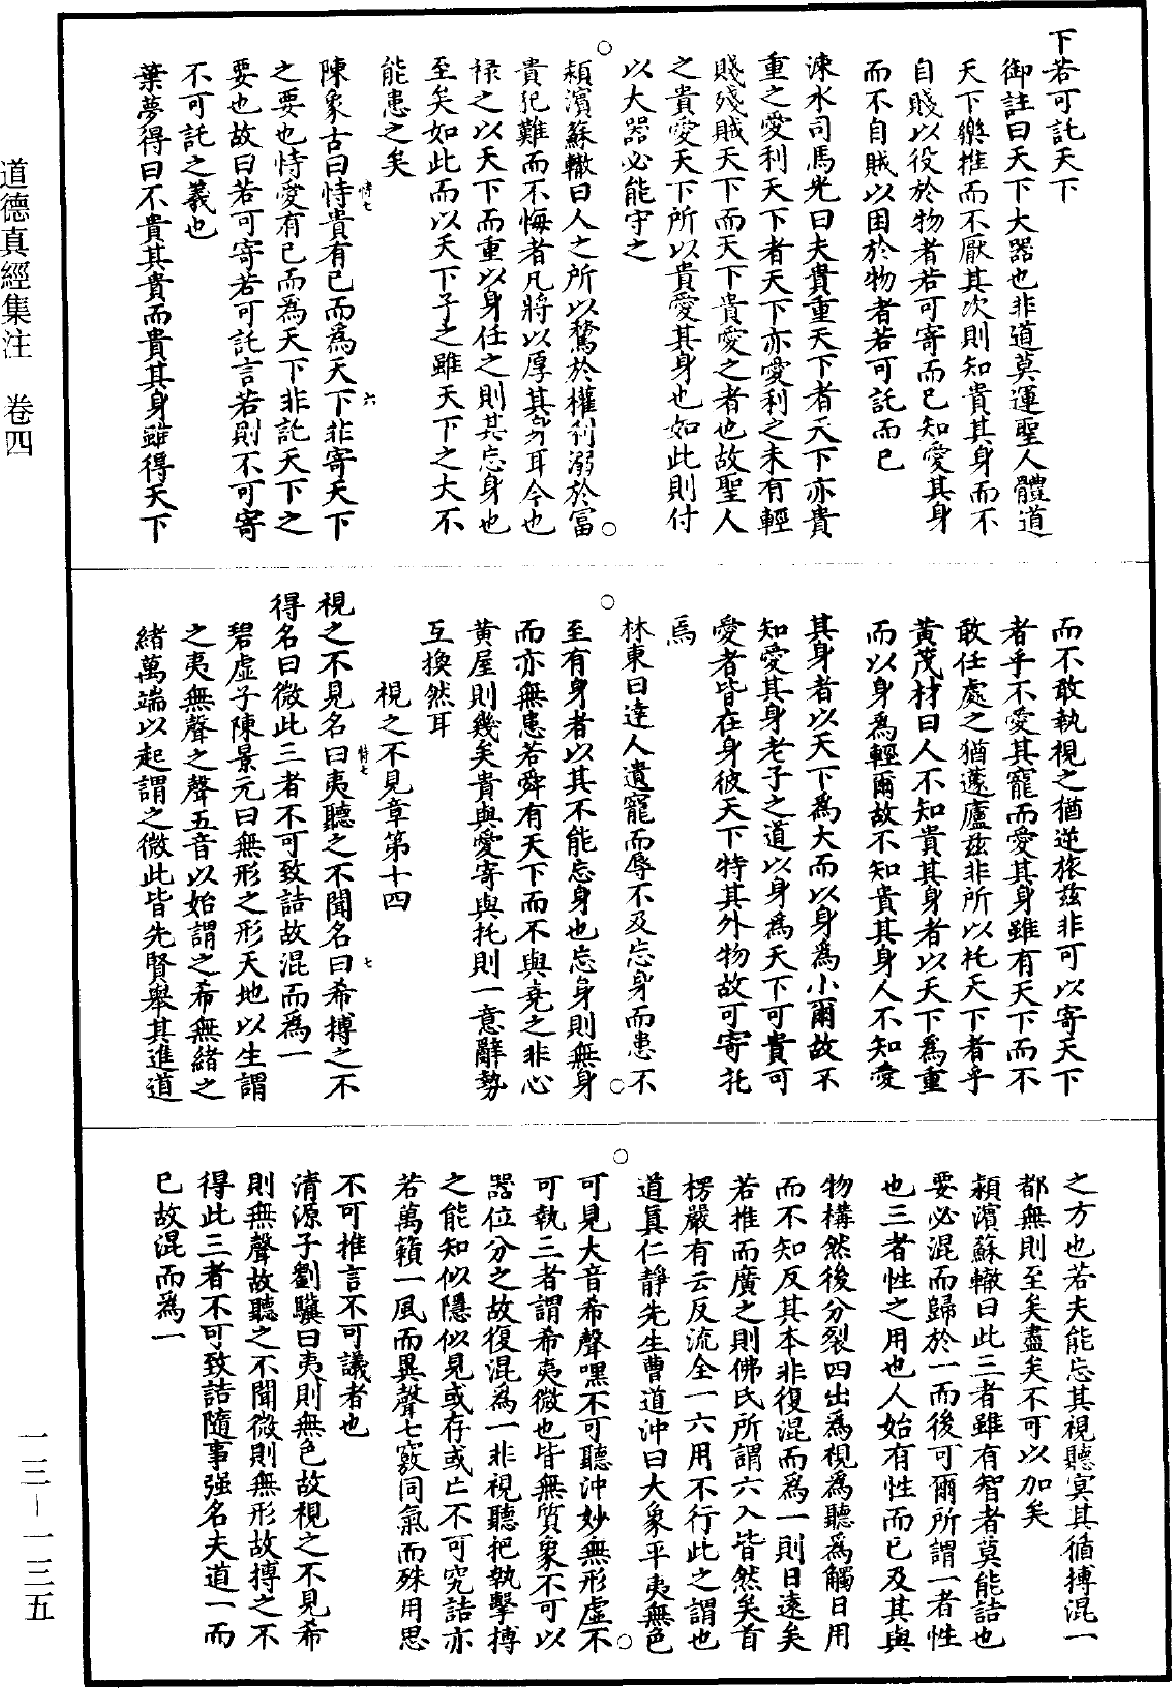 下若可託天下
御註曰天下大器也非道莫運聖人體道
天下樂推而不厭其次則知貴其身而不
自賤以役於物者若可寄而已知愛其身
而不自賊以困於物者若可託而已
涑水司馬光曰夫貴重天下者天下亦貴
重之愛利天下者天下亦愛利之未有輕
賤殘賊天下而天下貴愛之者也故聖人
之貴愛天下所以貴愛其身也如此則付
以大器必能守之
潁濱蘇轍曰人之所以騖於權利溺於富
貴犯難而不悔者凡將以厚其身耳今也
祿之以天下而重以身任之則其忘身也
至矣如此而以天下予之雖天下之大不
能患之矣
陳象古曰恃貴有已而為天下非寄天下
之要也恃愛有已而為天下非託天下之
要也故曰若可寄若可託言若則不可寄
不可託之義也
葉夢得曰不貴其貴而貴其身雖得天下
恃七
六
而不敢執視之猶逆旅茲非可以寄天下
者乎不愛其寵而愛其身雖有天下而不
敢任處之猶蘧廬茲非所以托天下者乎
黃茂材曰人不知貴其身者以天下為重
而以身為輕爾故不知貴其身人不知愛
其身者以天下為大而以身為小爾故不
知愛其身老子之道以身為天下可貴可
愛者皆在身彼天下特其外物故可寄託
焉
林東曰達人遺寵而辱不及忘身而患不
至有身者以其不能忘身也忘身則無身
而亦無患若舜有天下而不與堯之非心
黃屋則幾矣貴與愛寄與托則一意辭勢
互換然耳
視之不見章第十四
視之不見名曰夷聽之不聞名曰希搏之不
得名曰微此三者不可致詰故混而為一
碧虛子陳景元曰無形之形天地以生謂
之夷無聲之聲五音以始謂之希無緒之
緒萬端以起謂之微此皆先賢舉其進道
恃七
七
之方也若夫能忘其視聽冥其循搏混一
都無則至矣盡矣不可以加矣
潁濱蘇轍曰此三者雖有智者莫能詰也
要必混而歸於一而後可爾所謂一者性
也三者性之用也人始有性而已及其與
物構然後分裂四出為視為聽為觸日用
而不知反其本非復混而為一則日遠矣
若推而廣之則佛氏所謂六入皆然矣首
楞嚴有云反流全一六用不行此之謂也
道真仁靜先生曹道沖曰大象平夷無色
可見大音希聲嘿不可聽沖妙無形虛不
可執三者謂希夷微也皆無質象不可以
器位分之故復混為一非視聽把執擊搏
之能知似隱似見或存或亡不可究詰亦
若萬籟一風而異聲七竅同氣而殊用思
不可推言不可議者也
清源子劉驥曰夷則無色故視之不見希
則無聲故聽之不聞微則無形故搏之不
得此三者不可致詰隨事强名夫道一而
已故混而為一
道德真經集注　卷四
一三－一三五